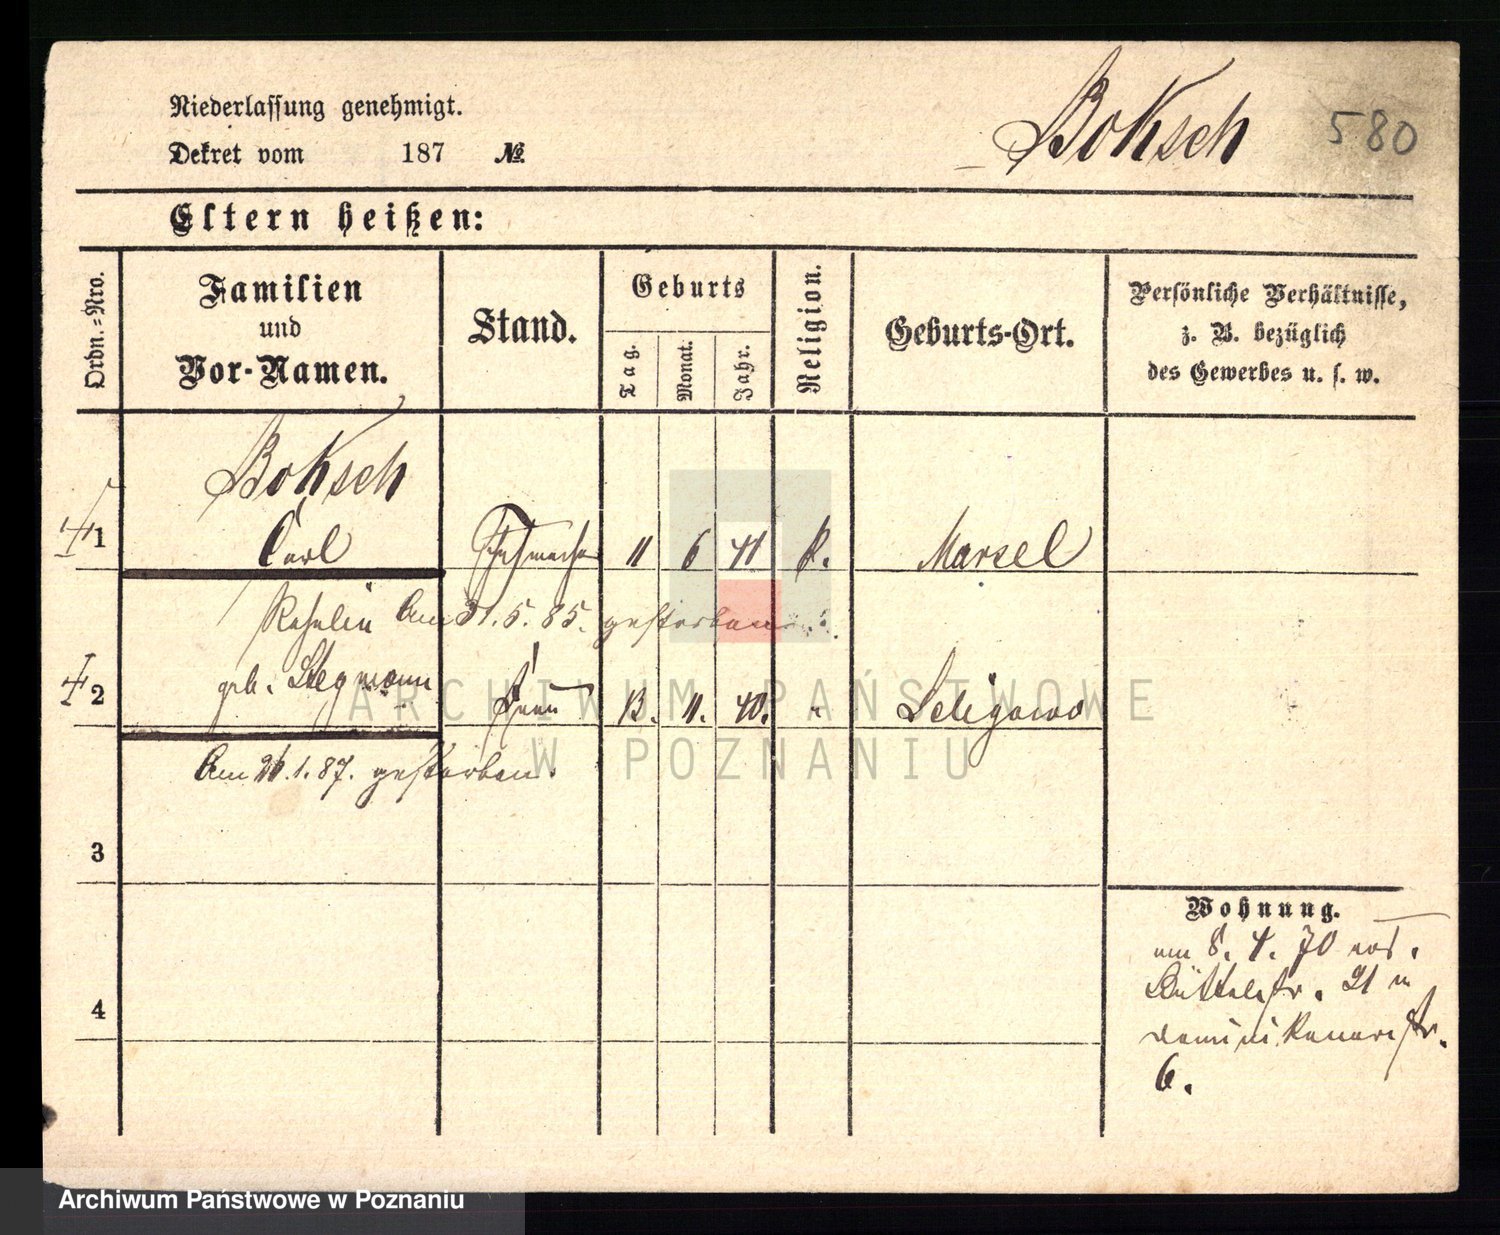 Niederlassung genehmigt.
Boksch 580
Dekret vom 187 №
Eltern heißen:
Ordn.=Nro.
Familien
und
Vor-Namen.
Stand.
Geburts
Tag.
Monat.
Jahr.
Religion.
Geburts-Ort.
Persönliche Verhältnisse,
z. B. bezüglich
des Gewerbes u. s. w.
Boksch
1 Carl 11 6 41 k. Marsel
Am 31.5.85. gestorben
geb. Stegmann
2 Frau 13. 11. 40. " Seligowo
Am 26.1.87. gestorben.
3
4
Wohnung.
am 8. 4. 70 von
Büttelstr. 21 n
Dominikanerstr.
6.
ARCHIWUM PAŃSTWOWE
W POZNANIU
Archiwum Państwowe w Poznaniu